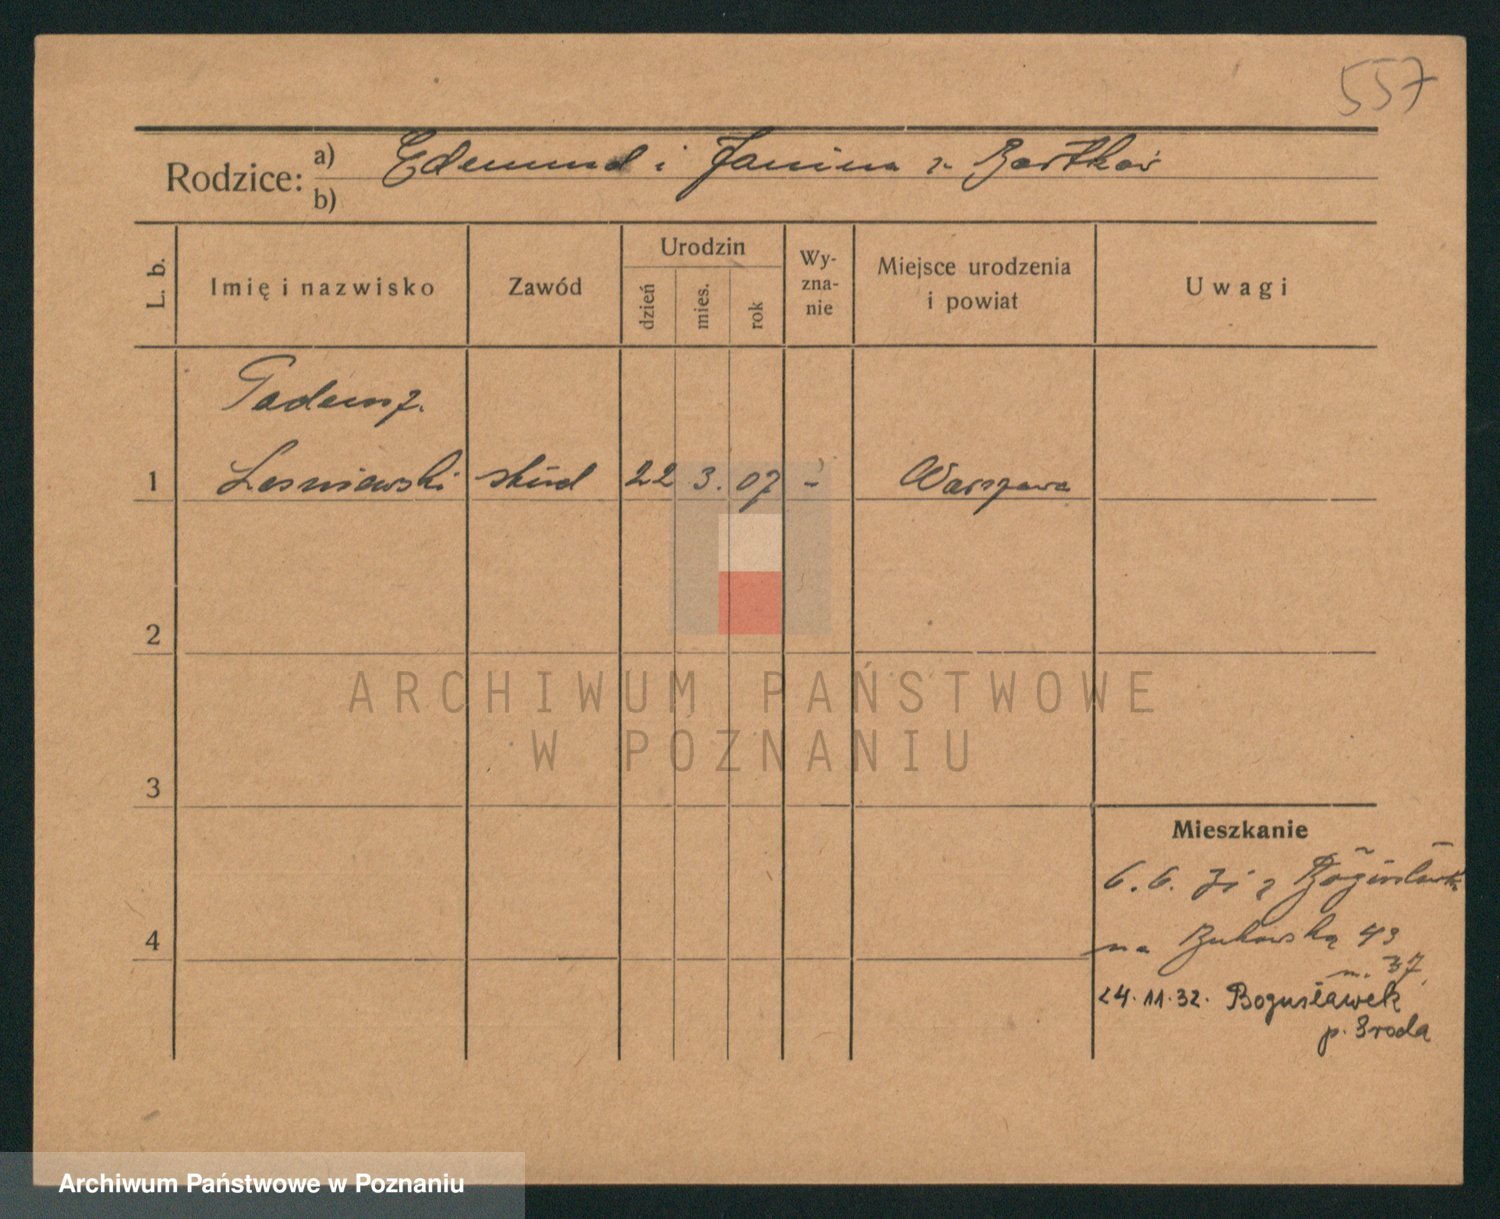 557
Rodzice: a) Edmund i Janina z Bartków
b)
L. b.
Imię i nazwisko
Zawód
Urodzin
dzień
mies.
rok
Wy-
zna-
nie
Miejsce urodzenia
i powiat
Uwagi
Tadeusz
1 Lesniewski stud 22 3. 07 - Warszawa
2
ARCHIWUM PAŃSTWOWE
W POZNANIU
3
4
Mieszkanie
6. 6. 31 z
na Bukowską 43
m. 37
24. 11. 32. Bogusławek
p. Sroda
Archiwum Państwowe w Poznaniu